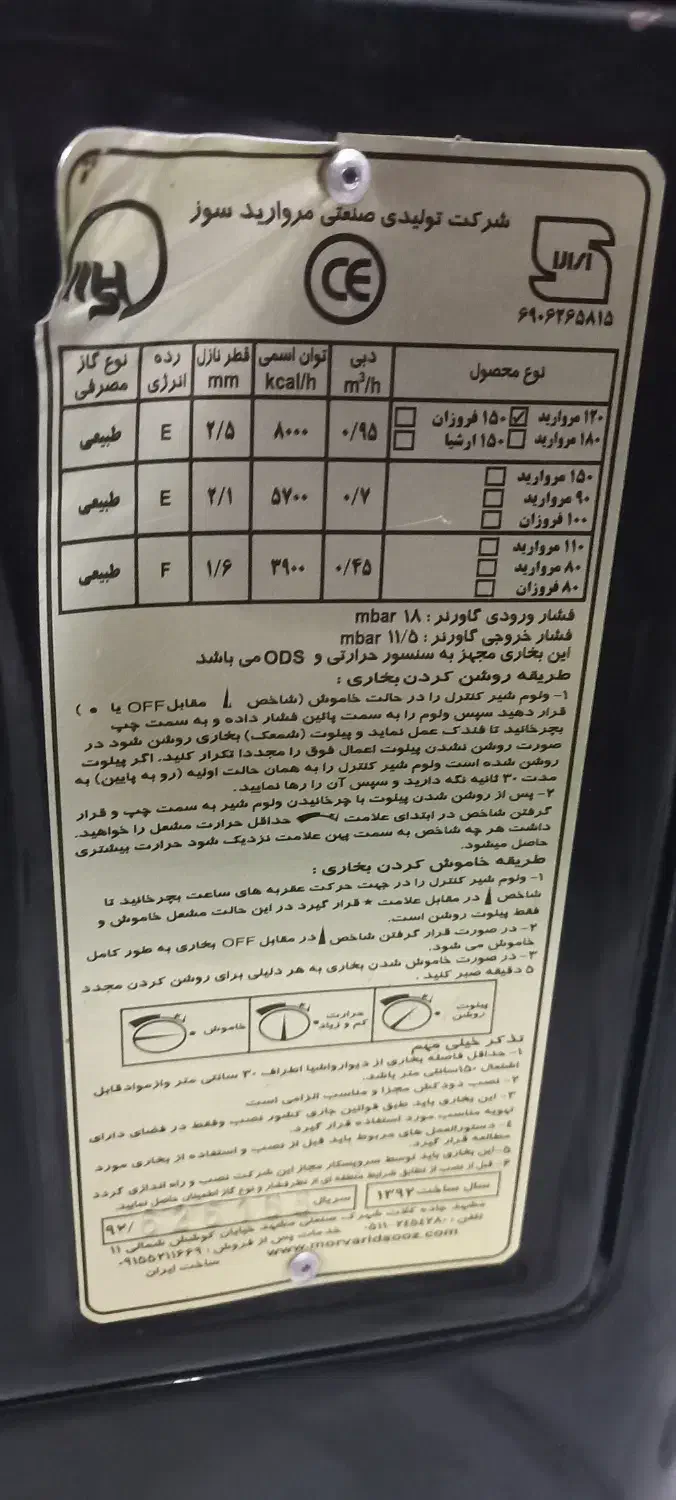 شرکت تولیدی صنعتی مروارید سوز
CE
۶۹۰۶۲۶۵۸۱۵
نوع محصول دبی m³/h توان اسمی kcal/h قطر نازل mm رده انرژی نوع گاز مصرفی
۱۲۰ مروارید ۱۵۰ فروزان
۱۸۰ مروارید ۱۵۰ ارشیا
۰/۹۵ ۸۰۰۰ ۲/۵ E طبیعی
۱۵۰ مروارید
۹۰ مروارید
۱۰۰ فروزان
۰/۷ ۵۷۰۰ ۲/۱ E طبیعی
۱۱۰ مروارید
۸۰ مروارید
۸۰ فروزان
۰/۴۵ ۳۹۰۰ ۱/۶ F طبیعی
فشار ورودی گاورنر : ۱۸ mbar
فشار خروجی گاورنر : ۱۱/۵ mbar
این بخاری مجهز به سنسور حرارتی و ODS می باشد
طریقه روشن کردن بخاری :
۱- ولوم شیر کنترل را در حالت خاموش (شاخص مقابل OFF یا ● )
قرار دهید سپس ولوم را به سمت پائین فشار داده و به سمت چپ
بچرخانید تا فندک عمل نماید و پیلوت (شمعک) بخاری روشن شود در
صورت روشن نشدن پیلوت اعمال فوق را مجددا تکرار کنید. اگر پیلوت
روشن شده است ولوم شیر کنترل را به همان حالت اولیه (رو به پایین) به
مدت ۳۰ ثانیه نگه دارید و سپس آن را رها نمایید.
۲- پس از روشن شدن پیلوت با چرخانیدن ولوم شیر به سمت چپ و قرار
گرفتن شاخص در ابتدای علامت حداقل حرارت مشعل را خواهید.
داشت هر چه شاخص به سمت پهن علامت نزدیک شود حرارت بیشتری
حاصل میشود.
طریقه خاموش کردن بخاری :
۱- ولوم شیر کنترل را در جهت حرکت عقربه های ساعت بچرخانید تا
شاخص در مقابل علامت * قرار گیرد در این حالت مشعل خاموش و
فقط پیلوت روشن است.
۲- در صورت قرار گرفتن شاخص در مقابل OFF بخاری به طور کامل
خاموش می شود.
۳- در صورت خاموش شدن بخاری به هر دلیلی برای روشن کردن مجدد
۵ دقیقه صبر کنید .
پیلوت روشن حرارت کم و زیاد خاموش
تذکر خیلی مهم
۱- حداقل فاصله بخاری از دیوار واشیا اطراف ۳۰ سانتی متر وازموادقابل
اشتعال ۱۵۰سانتی متر باشد.
۲- نصب دودکش مجزا و مناسب الزامی است
۳- این بخاری باید طبق قوانین جاری کشور نصب وفقط در فضای دارای
تهویه مناسب مورد استفاده قرار گیرد.
۴- دستورالعمل های مربوط باید قبل از نصب و استفاده از بخاری مورد
مطالعه قرار گیرد.
۵-این بخاری باید توسط سرویسکار مجاز این شرکت نصب و راه اندازی گردد
۶- قبل از نصب از تطابق شرایط منطقه ای از نظر فشار و نوع گاز اطمینان حاصل نمایید.
سال ساخت ۱۳۹۲ سریال ۹۲/
مشهد جاده کلات شهرک صنعتی مشهد خیابان کوشش شمالی ۱۱
تلفن : ۲۴۵۴۲۸۰-۰۵۱۱ خدمات پس از فروش : ۰۹۱۵۵۲۱۱۶۶۹
www.morvaridsooz.com ساخت ایران